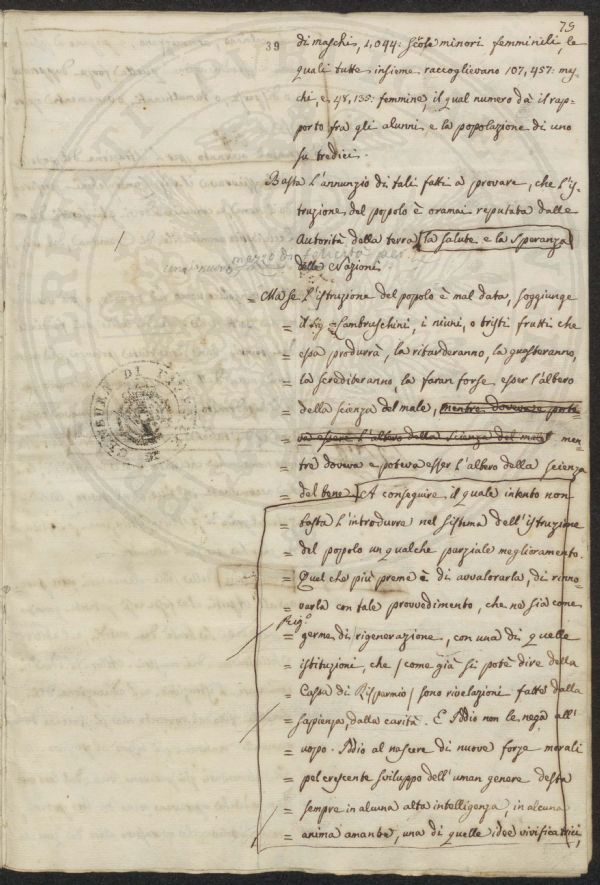 79
39
di maschi, 1,044: Scole minori femminili, le
quali tutte insieme raccoglievano 107,457: mas-
chi, e 48,135: femmine, il qual numero dà il rap-
porto fra gli alunni e la popolazione di uno
su tredici.
Basta l'annunzio di tali fatti a provare, che l'is-
truzione del popolo è oramai reputata dalle
Autorità della terra la salute e la Speranza
mezzo di felicità per
delle Nazioni.
= Ma se l'istruzione del popolo è mal data, soggiunge
= il Sig. Lambruschini, i niuni, o tristi frutti che
= essa produrrà, la ritarderanno, la guasteranno,
= la screditeranno, la faran forse esser l'albero
= della scienza del male, mentre doveva e pote-
= va essere l'albero della scienza del male men-
= tre doveva e poteva esser l'albero della scienza
= del bene. A conseguire il quale intento non
= basta l'introdurre nel sistema dell'istruzione
= del popolo un qualche parziale miglioramento.
= Quel che più preme è di avvalorarla, di rinno-
= varla con tale provvedimento, che ne sia come
= germe di rigenerazione, con una di quelle
= istituzioni, che / come già si potè dire della
= Cassa di Risparmio / sono rivelazioni fatte dalla
= sapienza, dalla carità. E Iddio non le nega all'
= uopo. Iddio al nascere di nuove forze morali
= pel crescente sviluppo dell'uman genere desta
= sempre in alcuna alta intelligenza, in alcuna
= anima amante, una di quelle idee vivificatrici,
CENSURA DI